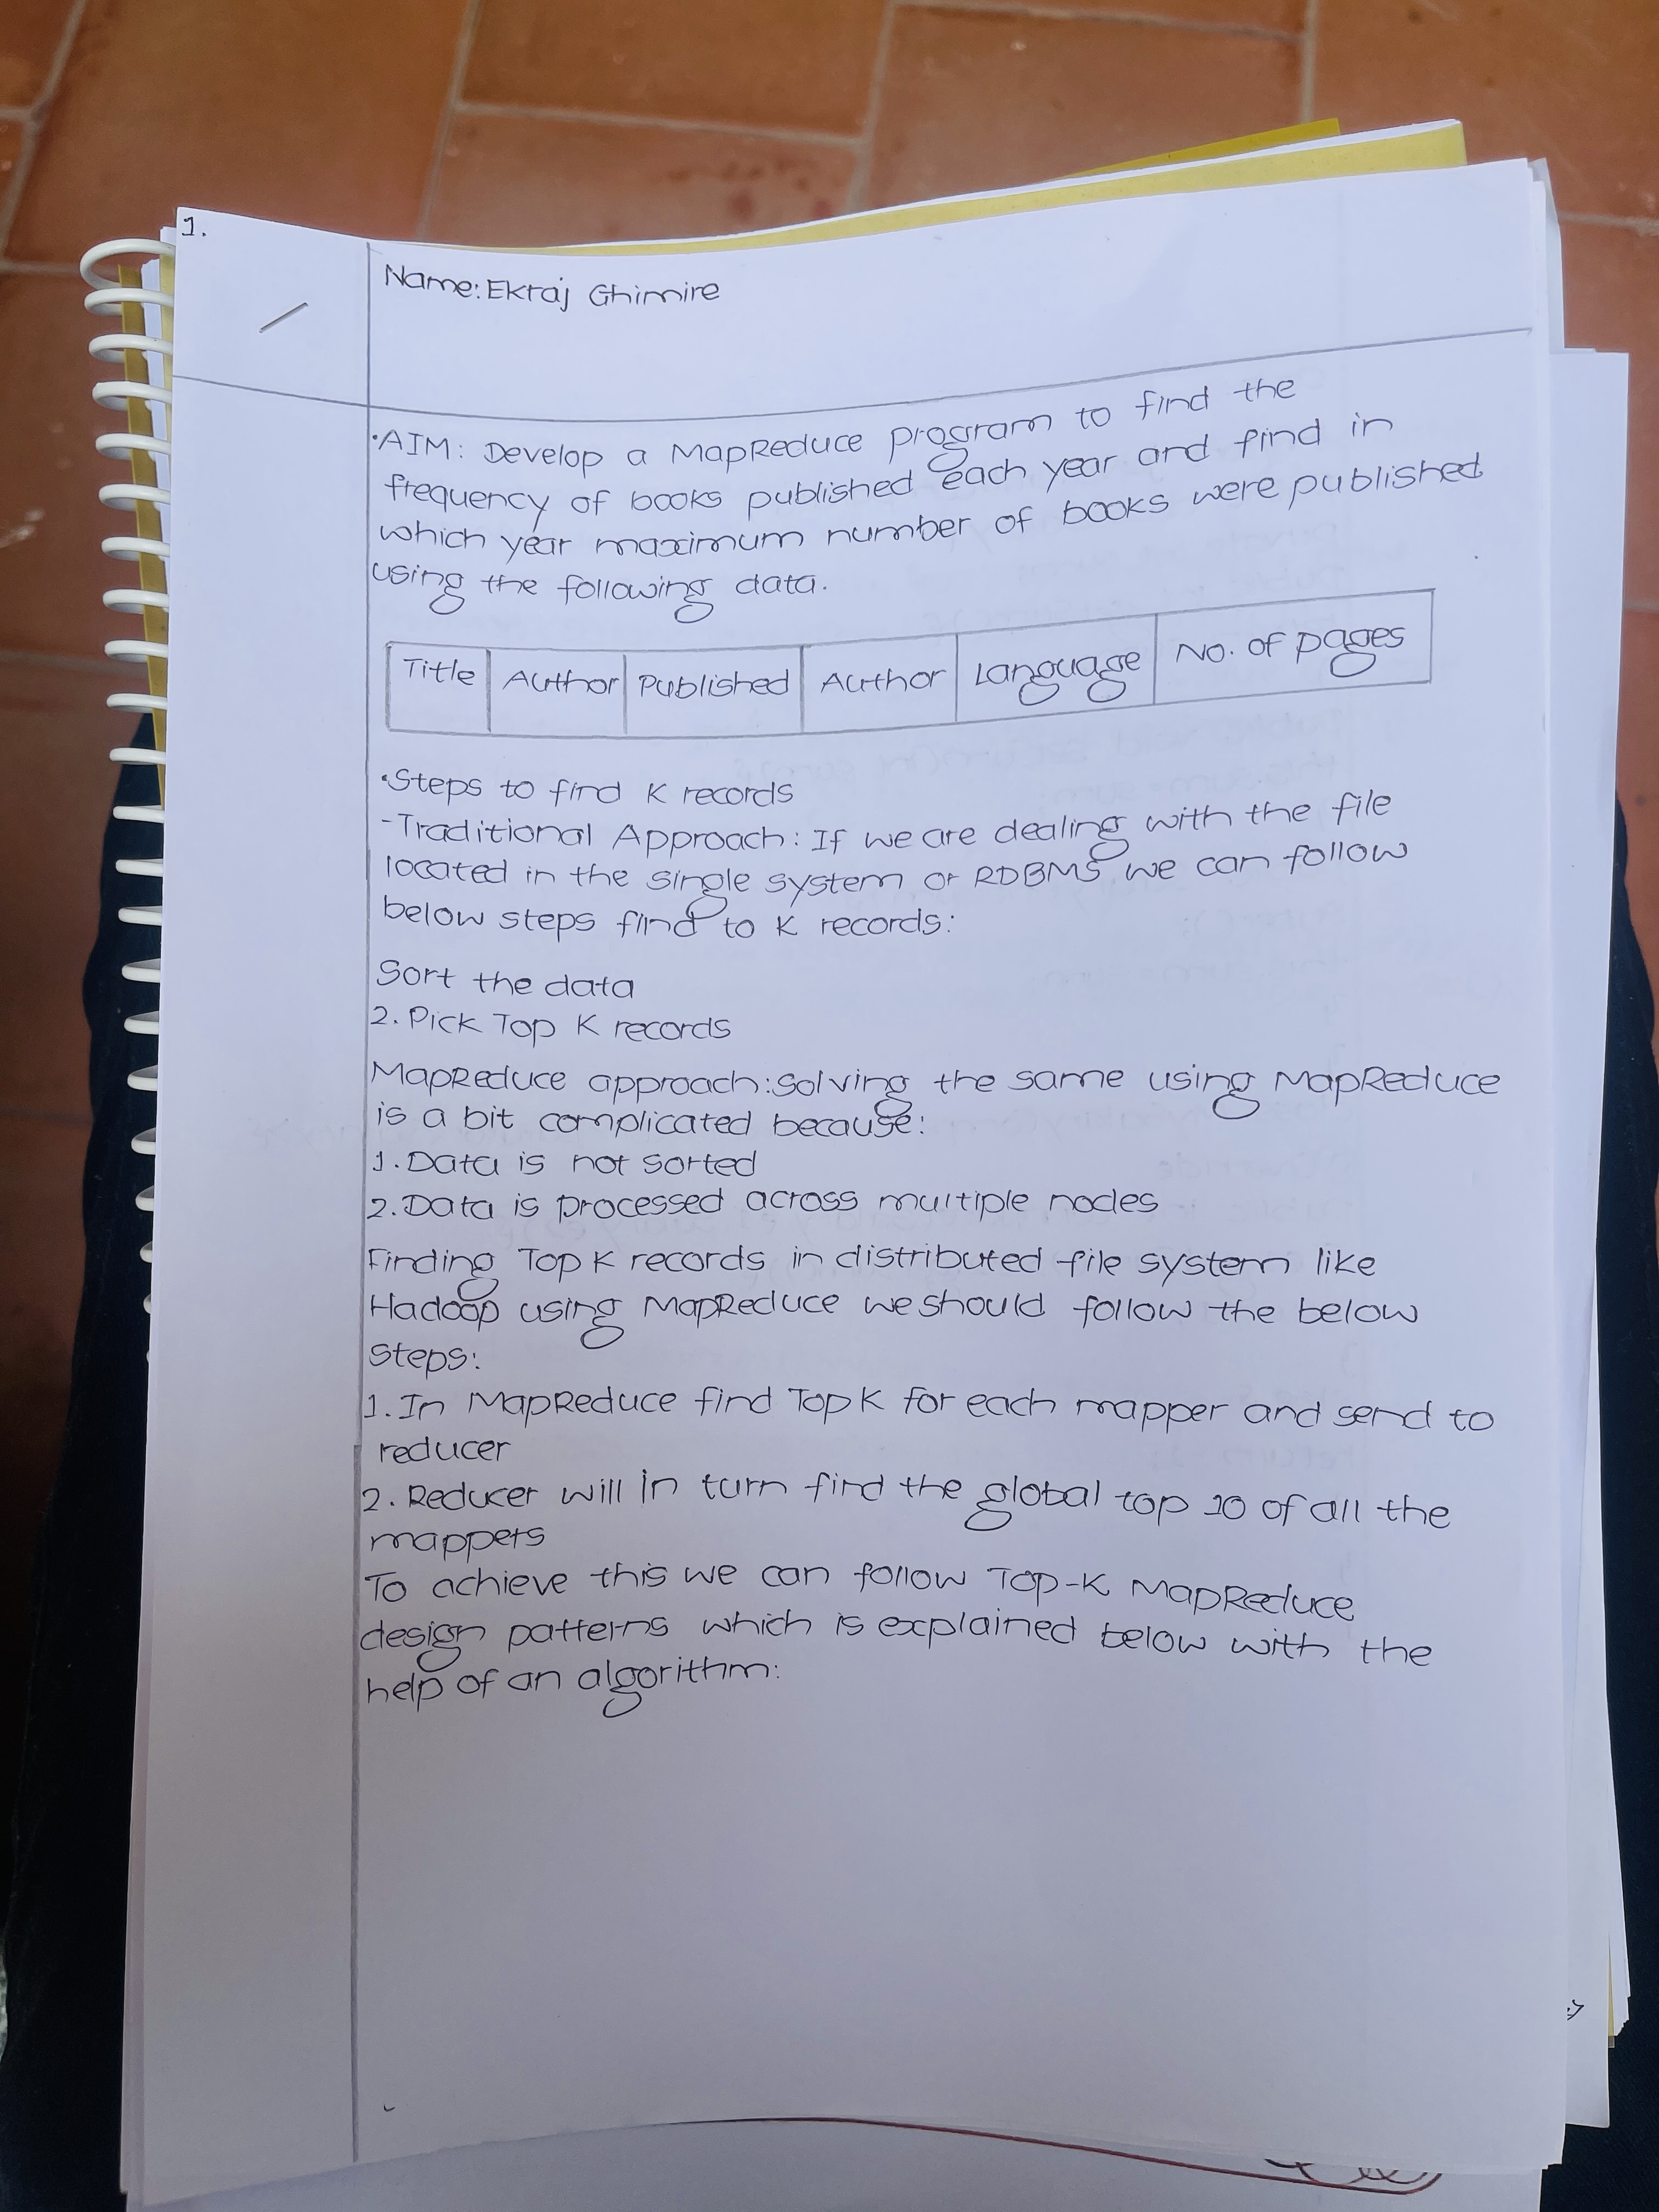 1.
Name: Ekraj Ghimire
•AIM: Develop a MapReduce program to find the
frequency of books published each year and find in
which year maximum number of books were published
using the following data.
Title Author Published Author Language No. of pages
•Steps to find K records
-Traditional Approach: If we are dealing with the file
located in the single system or RDBMS we can follow
below steps find to K records:
Sort the data
2. Pick Top K records
MapReduce approach: solving the same using MapReduce
is a bit complicated because:
1. Data is not sorted
2. Data is processed across multiple nodes
Finding Top K records in distributed file system like
Hadoop using MapReduce we should follow the below
steps:
1. In MapReduce find Top K for each mapper and send to
reducer
2. Reducer will in turn find the global top 10 of all the
mappers
To achieve this we can follow Top-K MapReduce
design patterns which is explained below with the
help of an algorithm: